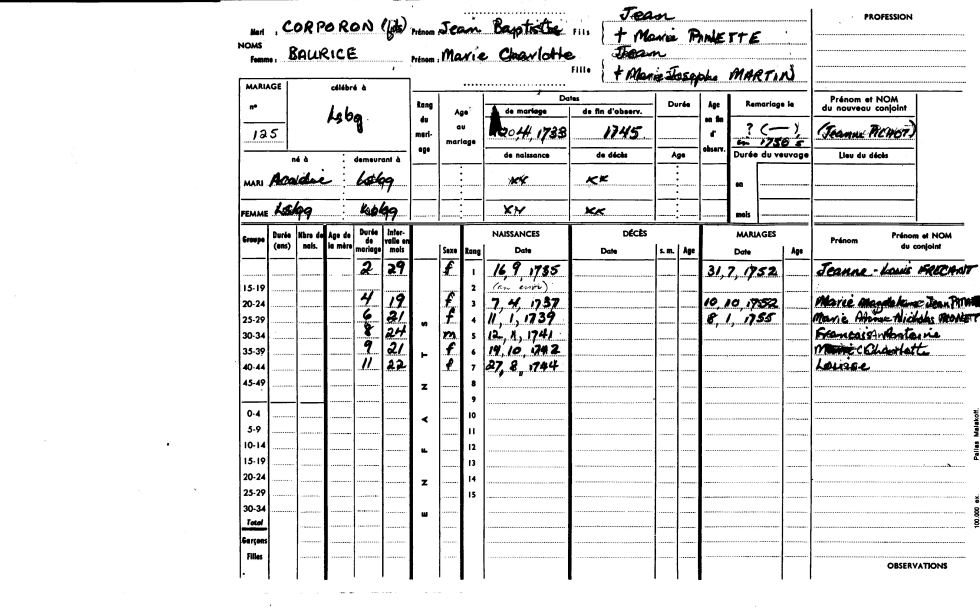 Mari : CORPORON (fils) Prénom : Jean Baptiste Fils Jean
+ Marie PINETTE
NOMS
Femme : BAURICE Prénom : Marie Charlotte Fille Jean
+ Marie Josephe MARTIN
PROFESSION
MARIAGE célébré à
n° 125 Lsbg
Rang du mariage
Age au mariage
Dates
de mariage de fin d'observ.
20, 4, 1733 1745
Durée
Age en fin d'observ.
Remariage le
? (—)
en 1750 s
Prénom et NOM du nouveau conjoint
(Jeanne PICHOT)
né à demeurant à de naissance de décès Age Durée du veuvage Lieu du décès
MARI Acadie Lsbg XX XX en
FEMME Lsbg Lsbg XX XX mois
Groupe Durée (ans) Nbre de nais. Age de la mère Durée de mariage Intervalle en mois
ENFANTS
Sexe Rang NAISSANCES Date DÉCÈS Date s. m. Age MARIAGES Date Age Prénom Prénom et NOM du conjoint
2 29 f 1 16, 9, 1735 31, 7, 1752 Jeanne - Louis FRECHANT
15-19 2 (an error)
20-24 4 19 f 3 7, 4, 1737 10, 10, 1752 Marie Magdeleine Jean
25-29 6 21 f 4 11, 1, 1739 8, 1, 1755 Marie Anne Nicholas
30-34 8 24 m 5 12, 1, 1741 Francois-Antoine
35-39 9 21 f 6 14, 10, 1742 Charlotte
40-44 11 22 f 7 27, 8, 1744 Louise
45-49 8
9
0-4 10
5-9 11
10-14 12
15-19 13
20-24 14
25-29 15
30-34
Total
Garçons
Filles
OBSERVATIONS
100.000 ex. Pairies Malakoff.